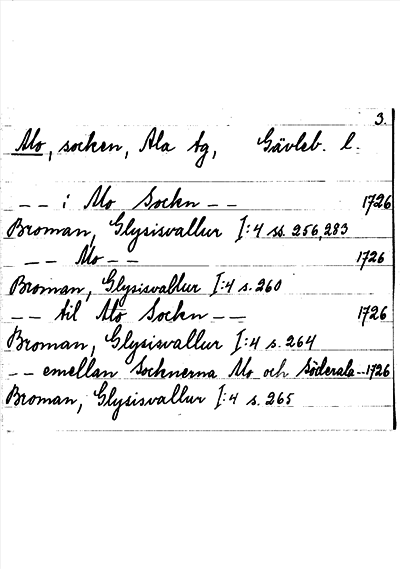 3.
Mo, socken, Ala tg, Gävleb. l.
-- i Mo Sockn -- 1726
Broman, Glysisvallur I:4 ss. 256, 283
-- Mo -- 1726
Broman, Glysisvallur I:4 s. 260
-- til Mo Sockn -- 1726
Broman, Glysisvallur I:4 s. 264
-- emellan Socknerna Mo och Söderala -- 1726
Broman, Glysisvallur I:4 s. 265